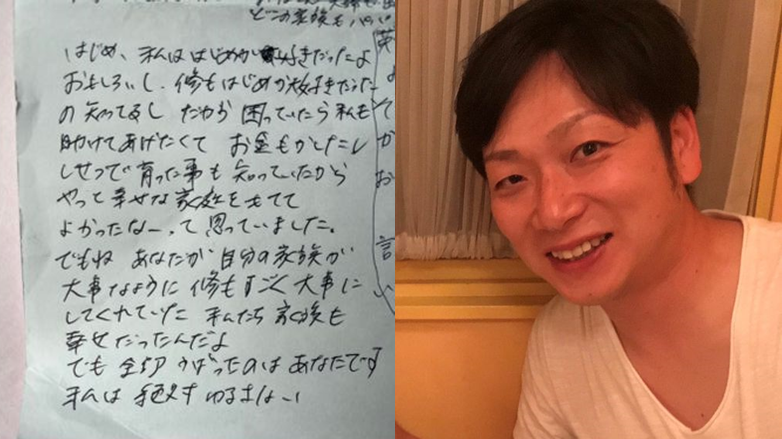 どこの家族も
はじめ、私ははじめが好きだったよ
おもしろいし、修もはじめが大好きだった
の知ってるし だから 困っていたら私も
助けてあげたくて お金もかしたし
しせつで育った事も知っていたから
やっと幸せな家庭をもてて
よかったなー、って思っていました。
でもね あなたが自分の家族が
大事なように 修もすごく大事に
してくれていた 私たち家族も
幸せだったんだよ
でも全部うばったのはあなたです
私は絶対ゆるさない